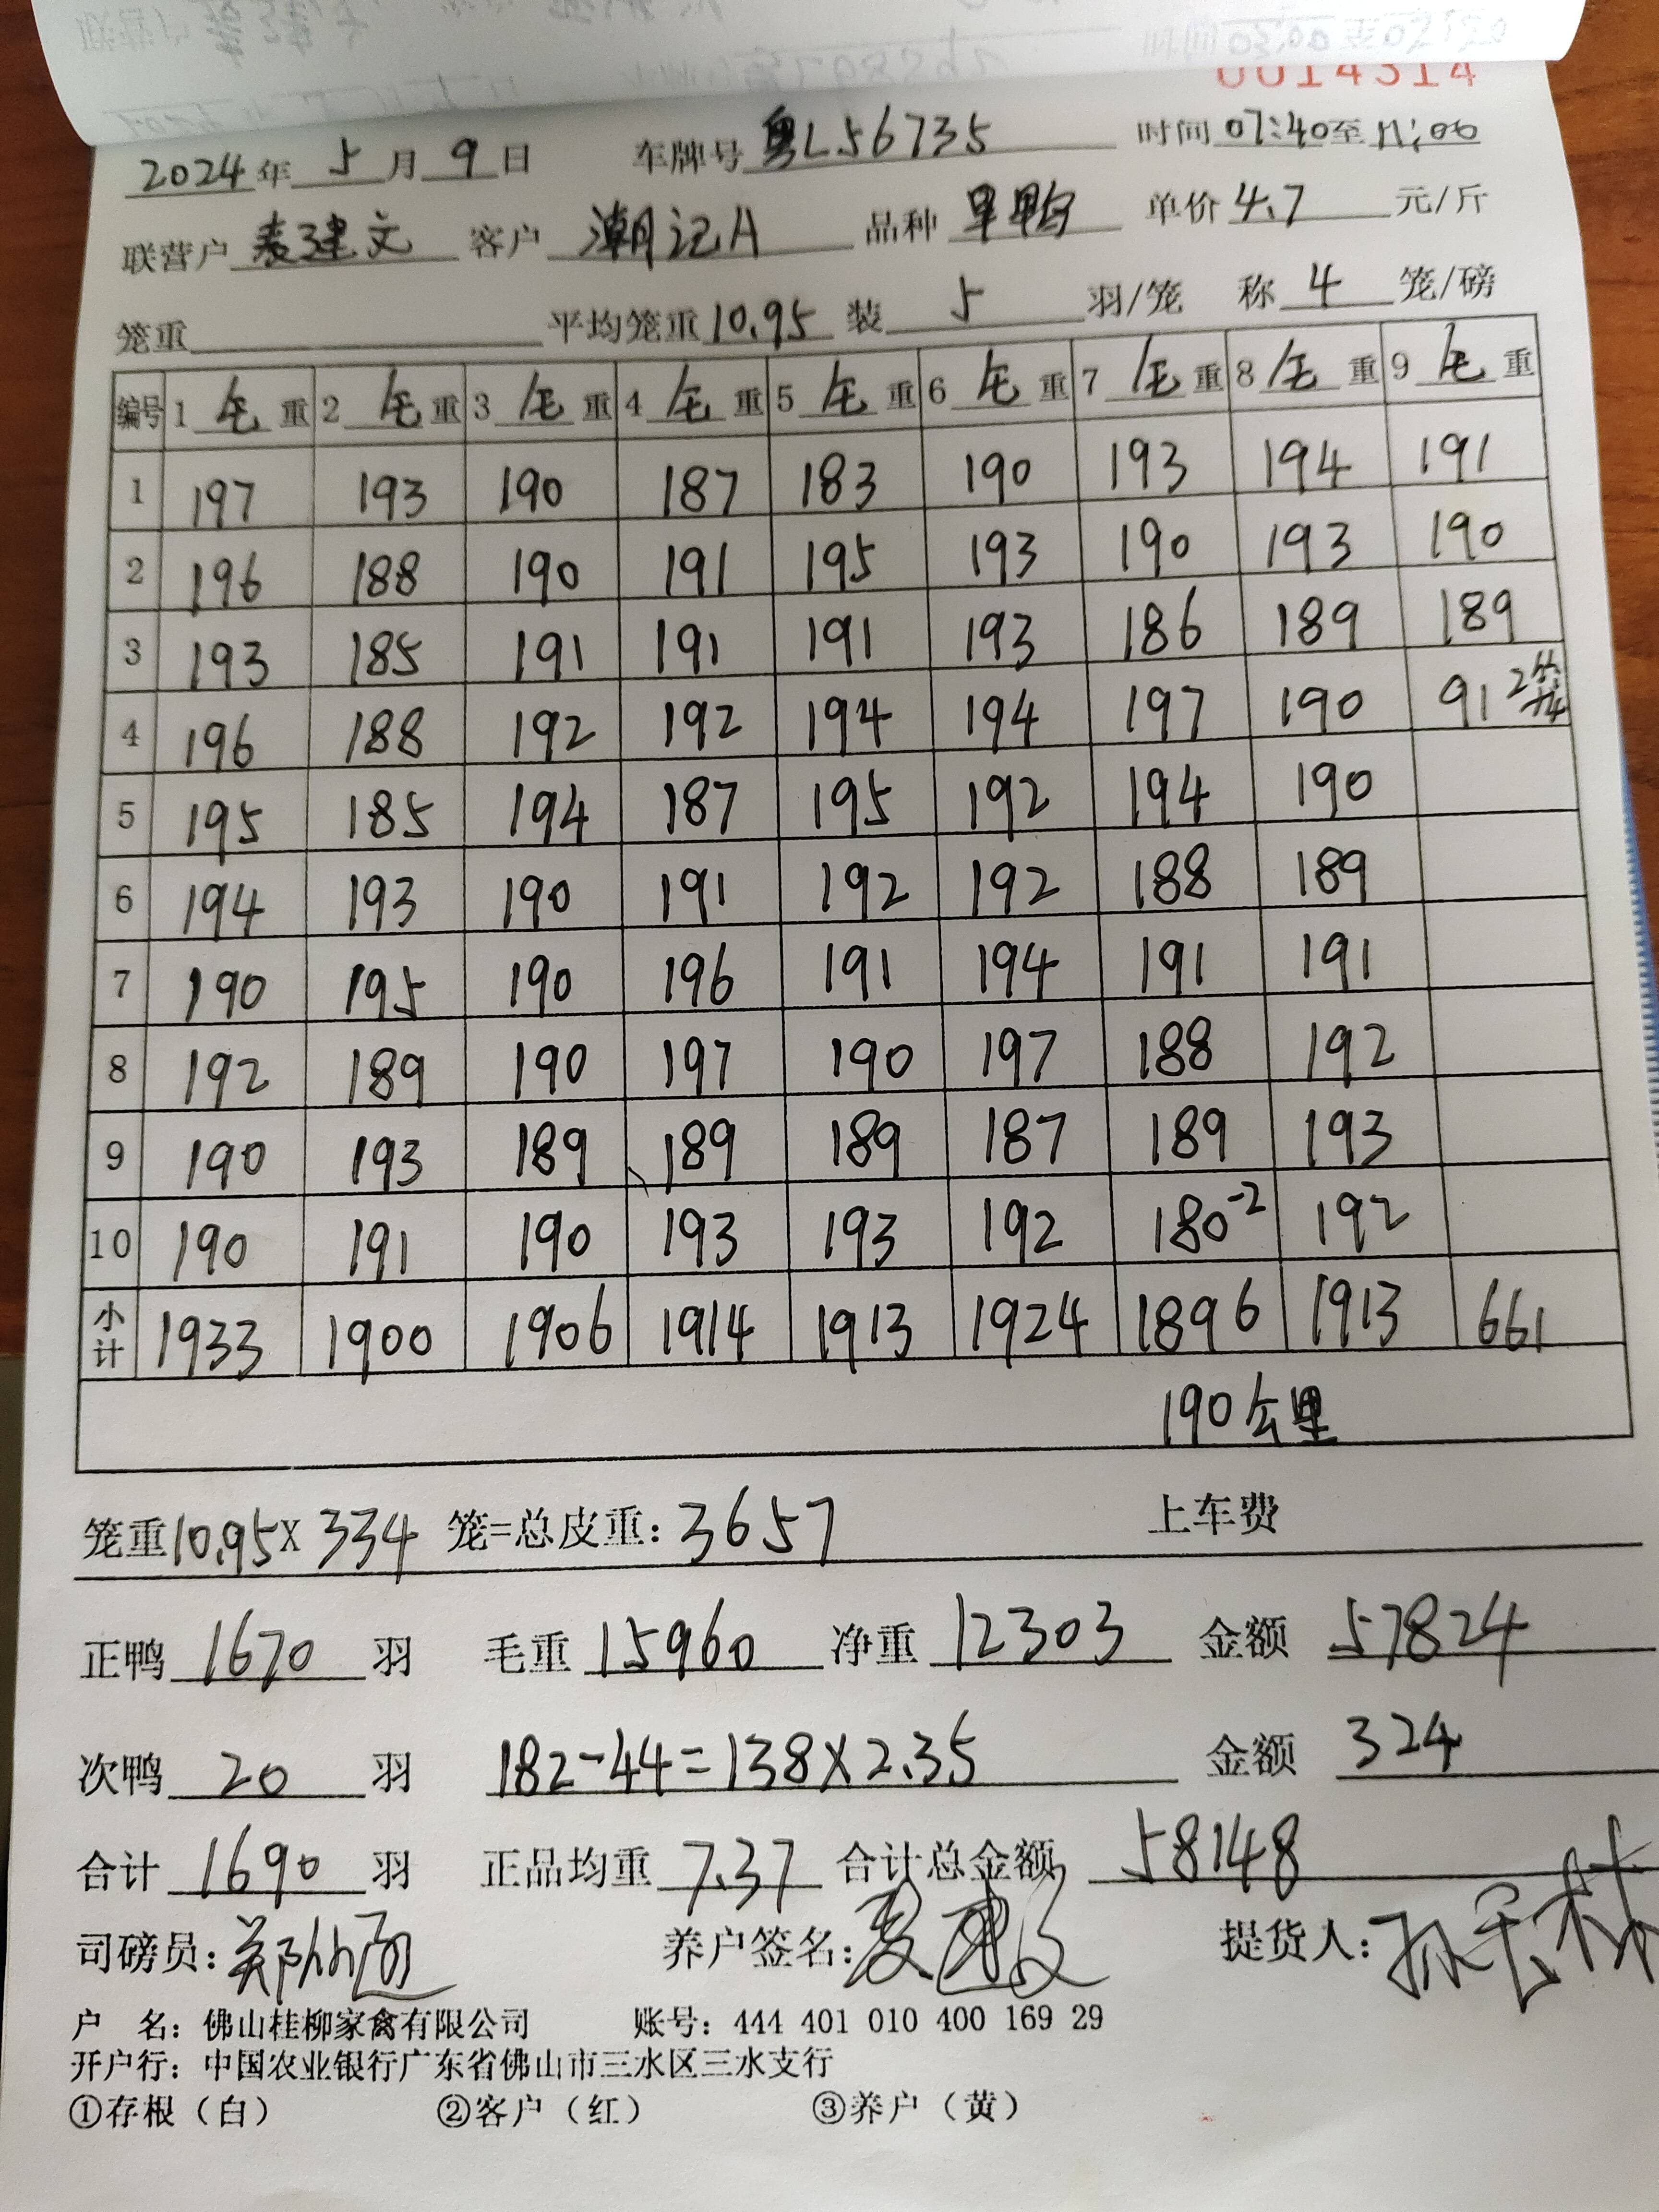 0014314
2024年 5月 9日 车牌号 粤L56735 时间 07:40至11:00
联营户 麦建文 客户 潮记A 品种 早鸭 单价 4.7 元/斤
笼重 平均笼重 10.95 装 5 羽/笼 称 4 笼/磅
编号 1 毛 重 2 毛 重 3 毛 重 4 毛 重 5 毛 重 6 毛 重 7 毛 重 8 毛 重 9 毛 重
1 197 193 190 187 183 190 193 194 191
2 196 188 190 191 195 193 190 193 190
3 193 185 191 191 191 193 186 189 189
4 196 188 192 192 194 194 197 190 91 2笼
5 195 185 194 187 195 192 194 190
6 194 193 190 191 192 192 188 189
7 190 195 190 196 191 194 191 191
8 192 189 190 197 190 197 188 192
9 190 193 189 189 189 187 189 193
10 190 191 190 193 193 192 180-2 192
小计 1933 1900 1906 1914 1913 1924 1896 1913 661
190公里
笼重10.95X 334 笼=总皮重: 3657 上车费
正鸭 1670 羽 毛重 15960 净重 12303 金额 57824
次鸭 20 羽 182-44=138X2.35 金额 324
合计 1690 羽 正品均重 7.37 合计总金额 58148
司磅员: 养户签名: 麦建文 提货人:
户 名: 佛山桂柳家禽有限公司 账号: 444 401 010 400 169 29
开户行: 中国农业银行广东省佛山市三水区三水支行
①存根（白） ②客户（红） ③养户（黄）